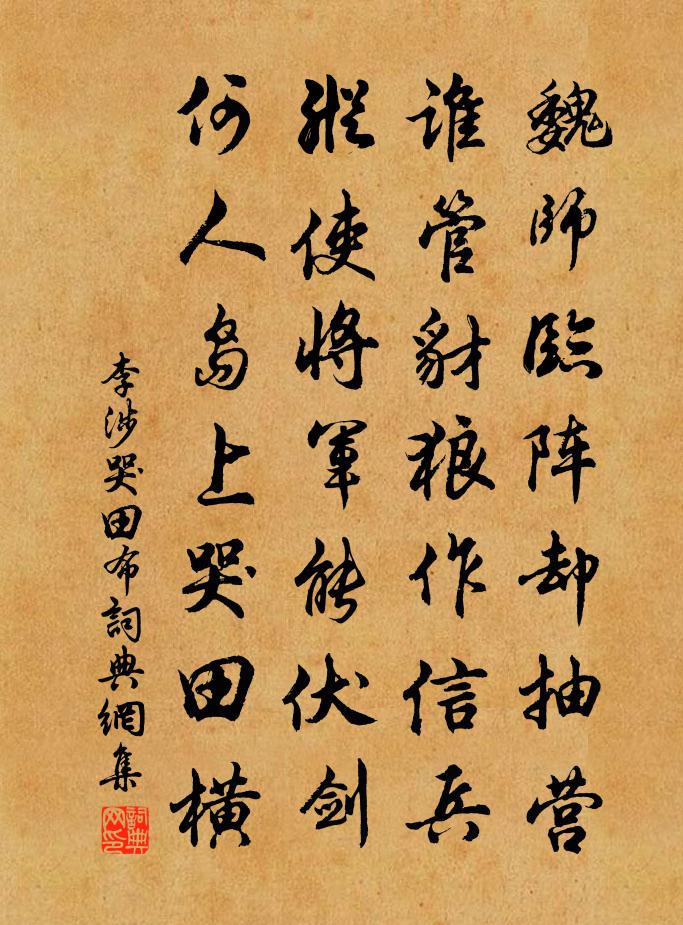 魏師臨阵却抽营
谁管豺狼作信兵
縱使將軍能伏剑
何人島上哭田橫
李涉哭田布詞典網集
詞典网印